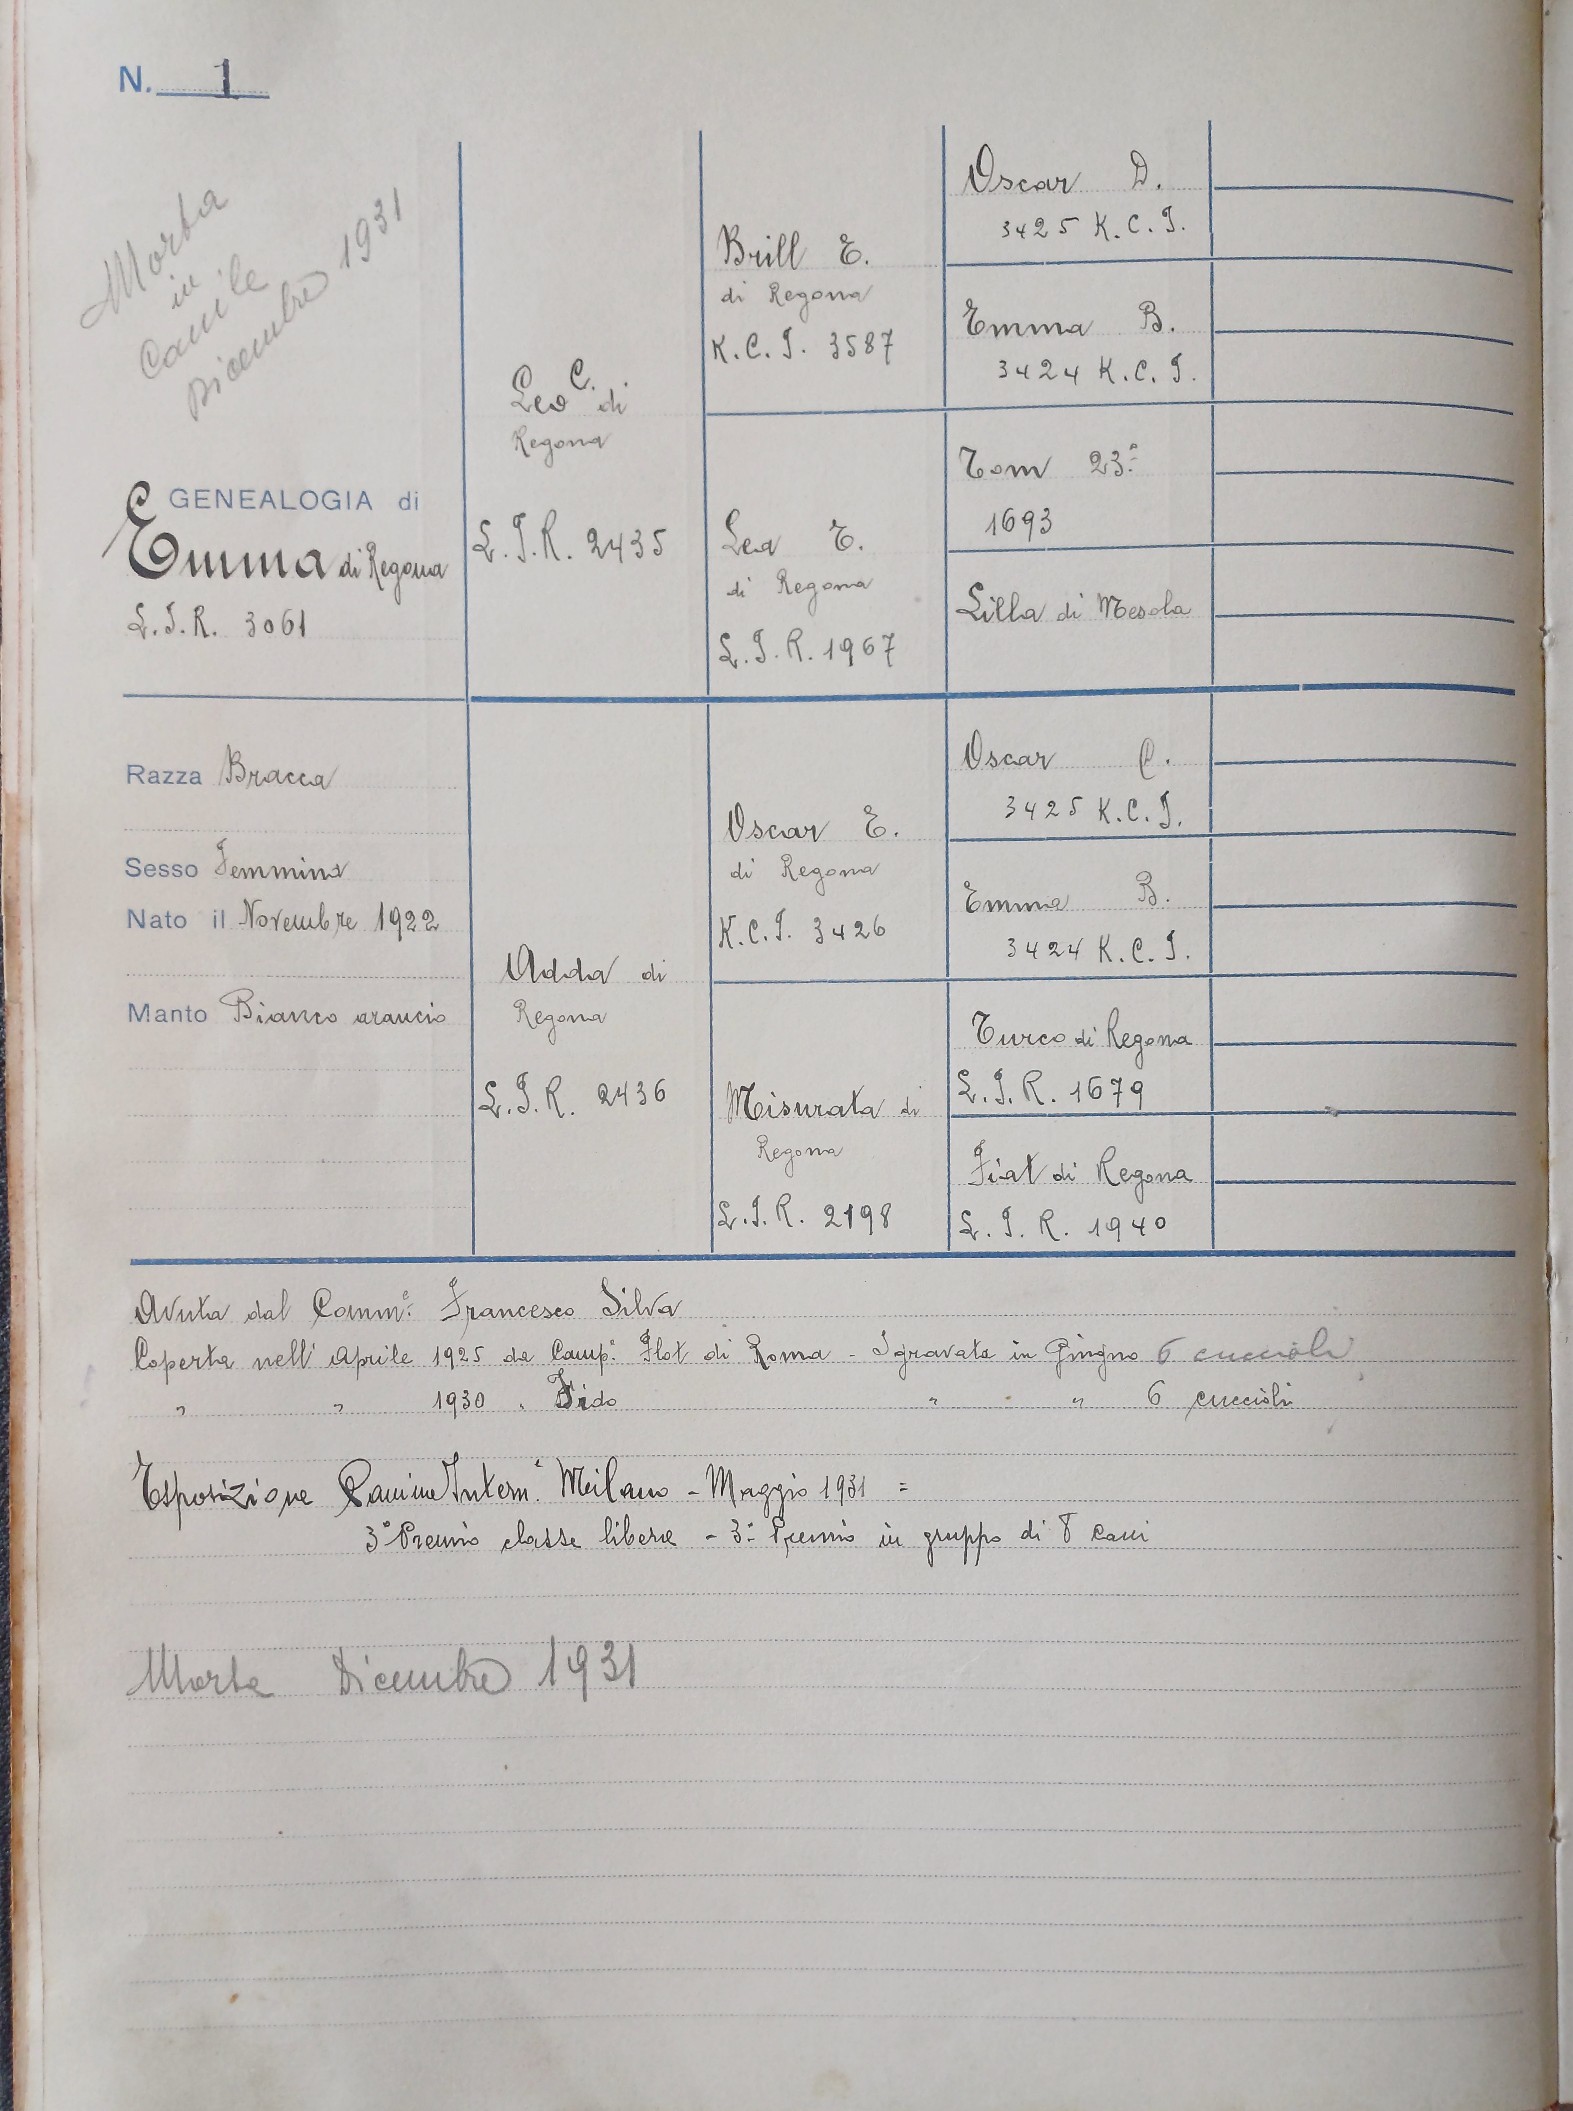 N. 1
Morta
in
Canile
Dicembre 1931
GENEALOGIA di
Emma di Regona
L.I.R. 3061
Razza Bracca
Sesso Femmina
Nato il Novembre 1922
Manto Bianco arancio
Leo C. di
Regona
L.I.R. 2435
Adda di
Regona
L.I.R. 2436
Brill E.
di Regona
K.C.I. 3587
Lea E.
di Regona
L.I.R. 1967
Oscar E.
di Regona
K.C.I. 3426
Misurata di
Regona
L.I.R. 2198
Oscar D.
3425 K.C.I.
Emma B.
3424 K.C.I.
Tom 23º
1693
Lilla di Mesola
Oscar C.
3425 K.C.I.
Emma B.
3424 K.C.I.
Turco di Regona
L.I.R. 1679
Fiat di Regona
L.I.R. 1940
Avuta dal Comm.e Francesco Silva
Coperta nell' Aprile 1925 da Camp. Flot di Roma - Sgravata in Giugno 6 cuccioli
" " 1930 " Fido " " 6 cuccioli
Esposizione Canine Intern. Milano - Maggio 1931 =
3º Premio classe libera - 3º Premio in gruppo di 8 cani
Morta Dicembre 1931